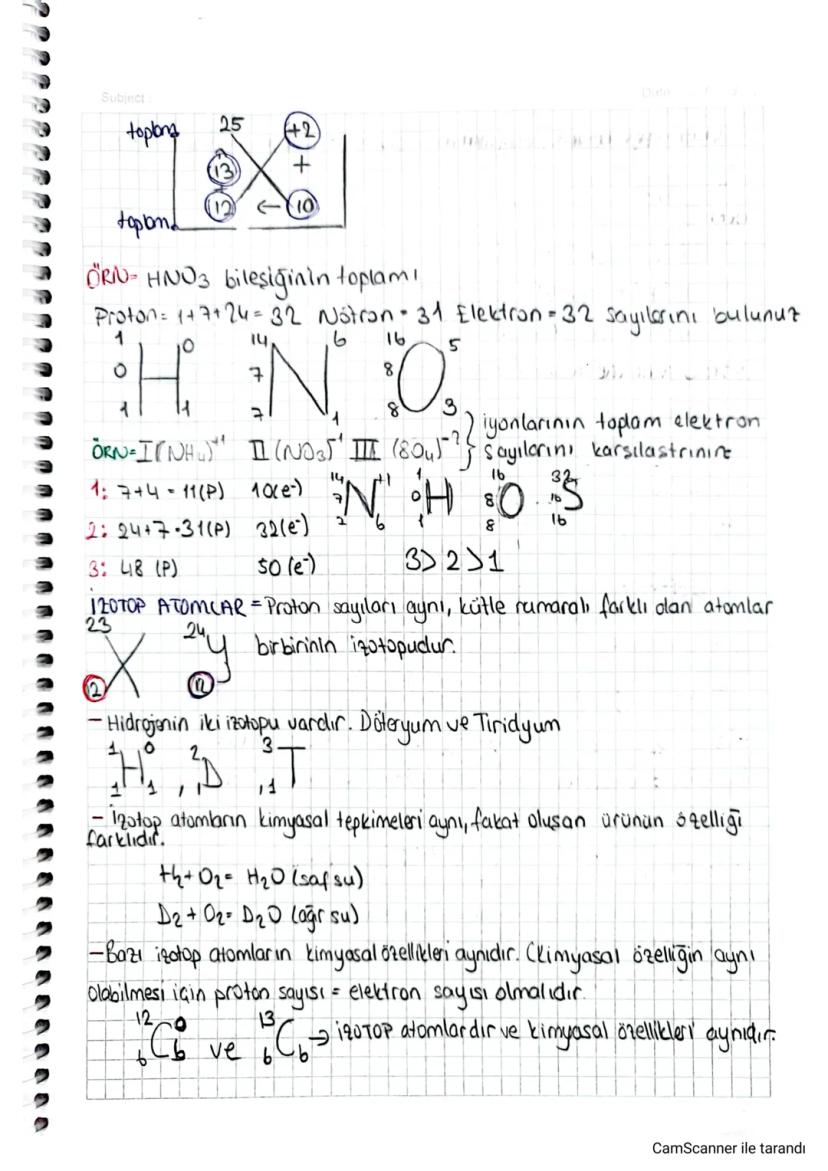 Subject:
Date
toplam 25 +2
13 +
12 ← 10
toplam
ÖRN= HNO3 bileşiğinin toplamı
Proton= 1+7+24= 32 Nötron = 31 Elektron = 32 sayılarını bulunuz
1 0 14 6 16 5
0 H 7 N 8 O
1 1 7 1 8 3
ÖRN= I(NH4)+1 II (NO3)-1 III (SO4)-2 } iyonlarının toplam elektron
sayılarını karşılaştırınız
1: 7+4 = 11(P) 10(e-) 14 7 N +1 1 0 H 1 16 8 O 8 32 16 S 16
2: 24+7=31(P) 32(e-)
3: 48 (P) 50 (e-) 3>2>1
İZOTOP ATOMLAR = Proton sayıları aynı, kütle numaralı farklı olan atomlar
23 X 12 24 Y 12 birbirinin izotopudur.
- Hidrojenin iki izotopu vardır. Döteryum ve Tiridyum
1 H 0 1 1 , 2 D 1 , 3 T 1
- İzotop atomların kimyasal tepkimeleri aynı, fakat oluşan ürünün özelliği
farklıdır.
H2+O2= H2O (saf su)
D2+O2= D2O (ağır su)
- Bazı izotop atomların kimyasal özellikleri aynıdır. (Kimyasal özelliğin aynı
olabilmesi için proton sayısı = elektron sayısı olmalıdır.
12 C 0 6 6 ve 13 C 6 6 → İZOTOP atomlardır ve kimyasal özellikleri aynıdır.
CamScanner ile tarandı